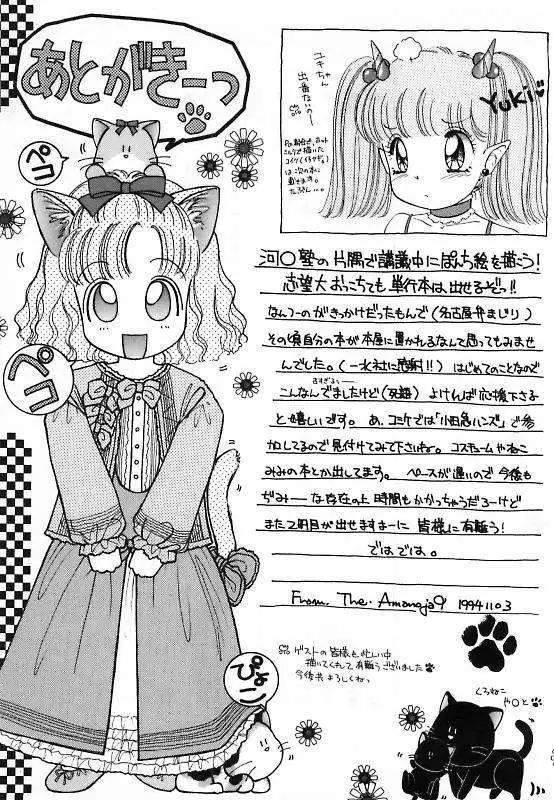 あとがきーっ
ペコ
ユキちゃん
出番ないの〜
Yuki
は次の本に
載せます。
たぶん…。
河〇塾の片隅で講議中にぽんち絵を描こう!
志望大おっこちても、単行本は、出せるぞっ!!
なんつーのがきっかけだったもんで(名古屋弁まじり)
その頃自分の本が本屋に置かれるなんて思ってもみませ
んでした。(一水社に感謝!!)はじめてのことなので
古すぎるっ…
こんなんでましたけど(死語)よければ応援下さる
と嬉しいです。あ、コミケでは「小田急ハンズ」で参
加してるので見付けてみて下さいね。コスチュームやねこ
みみの本とか出してます。ペースが遅いので今後も
ぢみーな存在の上時間もかかっちゃうだろーけど
また2冊目が出せますよーに皆様に有難う!
ではでは。
From. The. Amanoja9 1994.11.03
ペコ
ぴょコン
ゲストの皆様も忙しい中
描いてくれて有難うございました
今後共よろしくねっ
くろねこ
や〇と